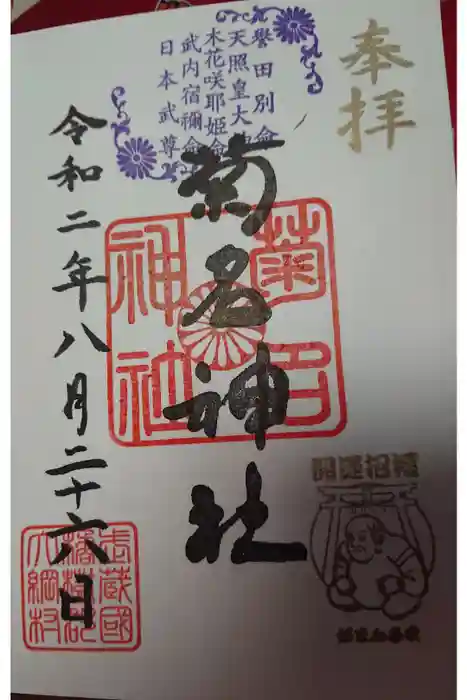 奉拝
譽田別命
天照皇大神
木花咲耶姫命
武内宿禰命
日本武尊
菊名神社
菊名
神社
令和二年八月二十六日
武蔵國
橘樹郡
大綱村